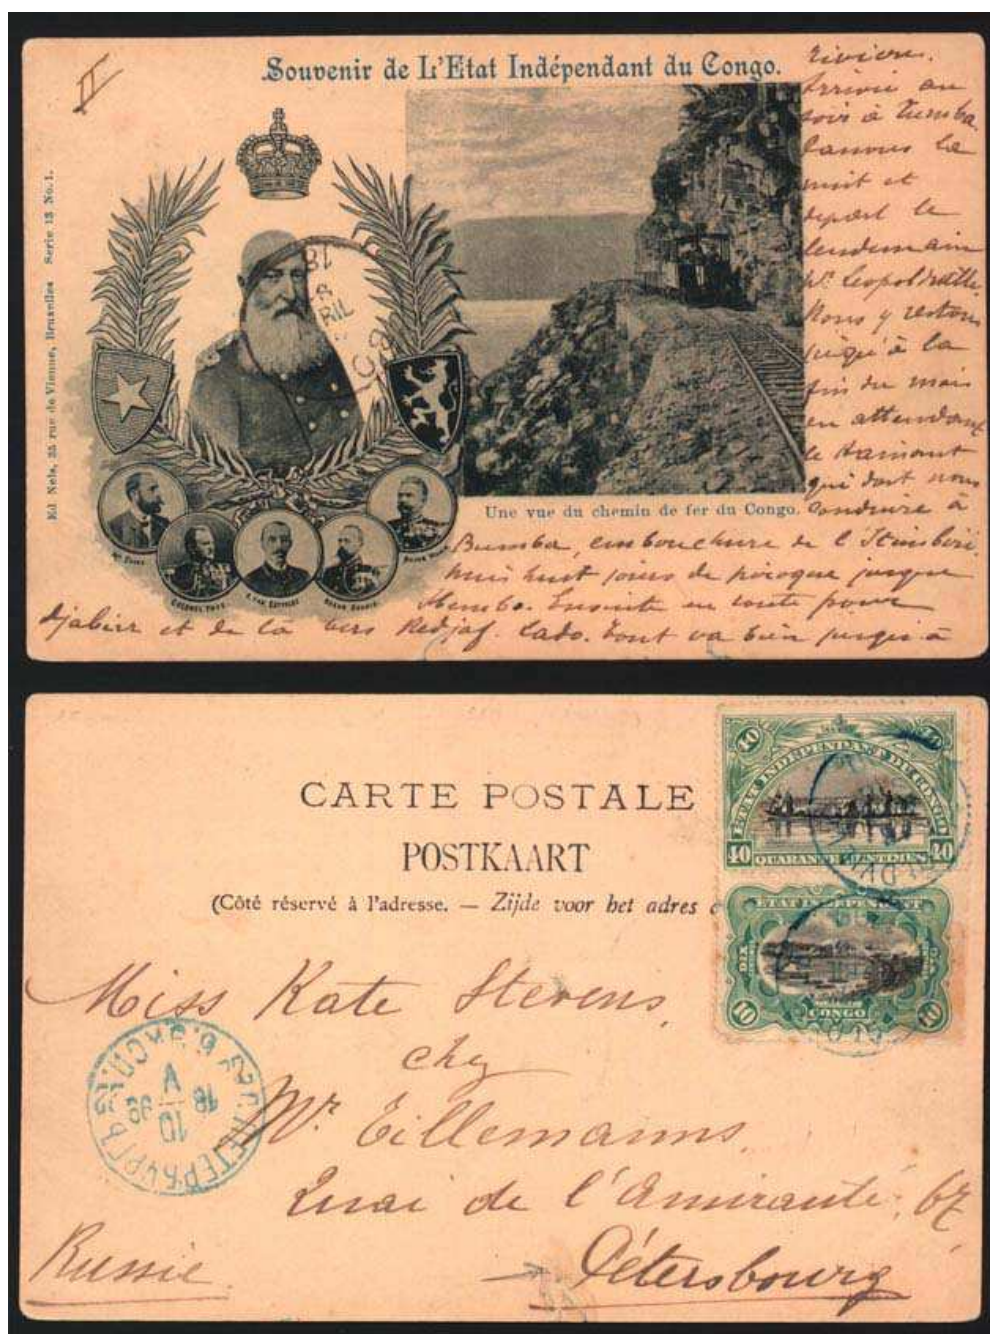 II
Souvenir de L'Etat Indépendant du Congo.
Ed Nels, 25 rue de Vienne, Bruxelles Serie 13 No. 1.
Une vue du chemin de fer du Congo.
COLONEL THYS
rivière.
Arrivée au
soir à Tumba
Passons la
nuit et
départ le
lendemain
pr. Leopoldville.
Nous y restons
jusqu'à la
fin du mois
en attendant
le
qui doit nous
conduire à
Bumba, embouchure de l'Itimbiri
puis huit jours de pirogue jusque
Ensuite en route pour
Djabirr et de là vers Redjaf. Lado. Tout va bien jusqu'à
CARTE POSTALE
POSTKAART
(Côté réservé à l'adresse. — Zijde voor het adres
ETAT INDEPENDANT DU CONGO
40 40
40 QUARANTE CENTIMES 40
ETAT INDEPENDANT
DIX
CONGO
10 10
Miss Kate Stevens,
chez
Mr. Tillemanns,
Quai de l'Amirauté, 67
Pétersbourg
Russie
С.ПЕТЕРБУРГЪ
10
V
18 99